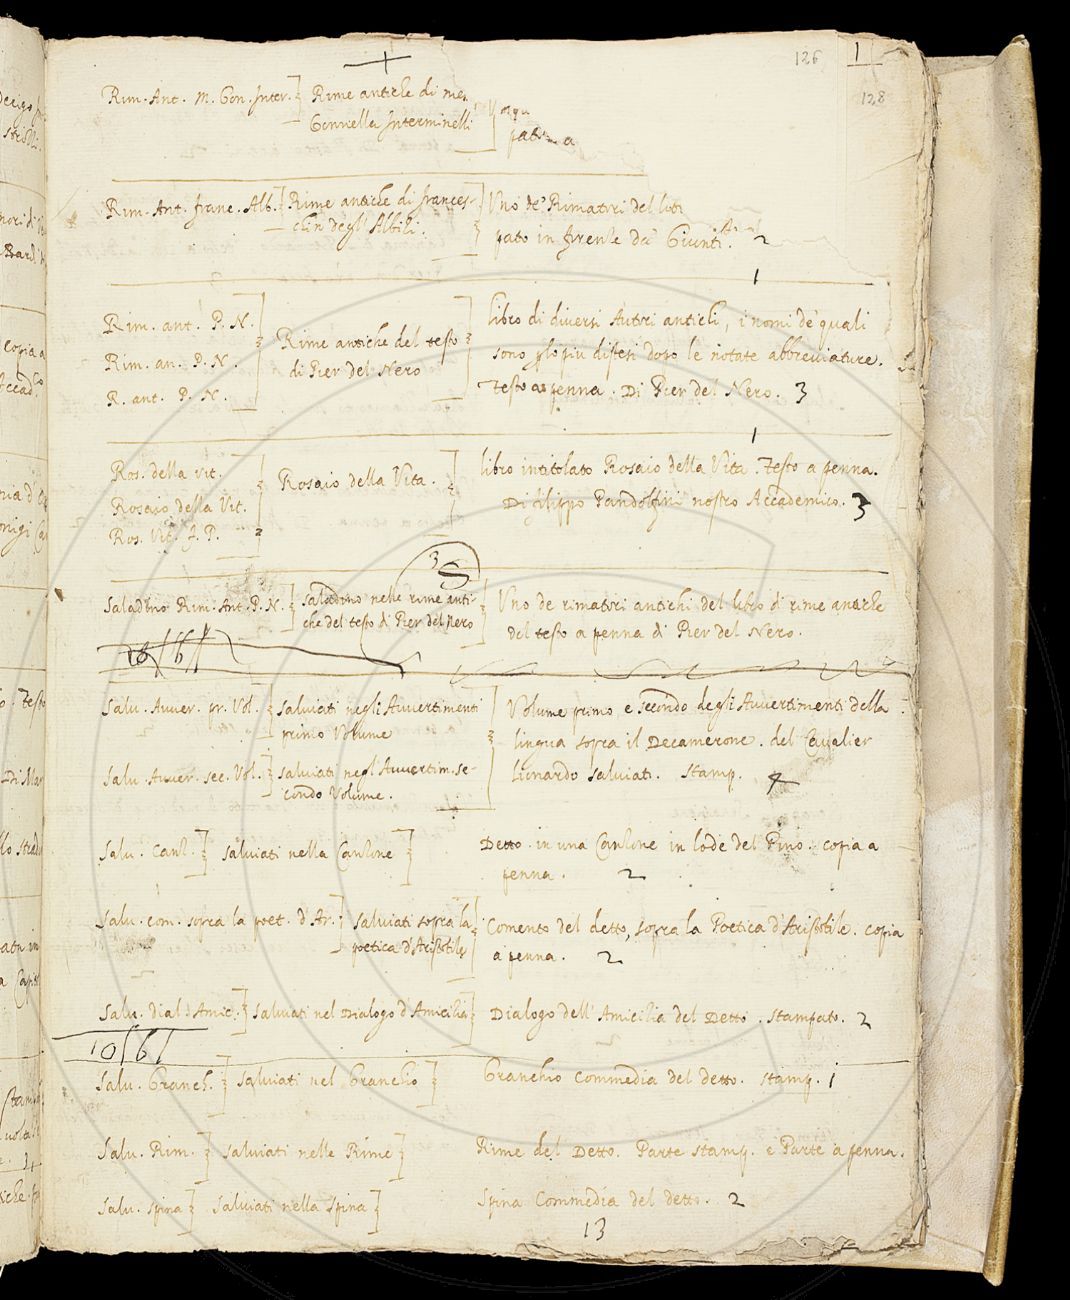 126
1
128
Rim. Ant. M. Gon. Inter. Rime antiche di
Gonnella Interminelli
Rim. Ant. franc. Alb. Rime antiche di frances- Uno de' Rimatori del
chin degl' Albizi. pato in firenze da' Giunti. 2
1
Rim. ant. P. N. Libro di diversi Autori antichi, i nomi de' quali
Rim. an. P. N. Rime antiche del testo sono plopiu distesi dopo le notate abbreviature.
R. ant. P. N. di Pier del Nero Testo a penna. Di Pier del Nero. 3
1
Ros. della vit. libro intitolato Rosaio della Vita. Testo a penna.
Rosaio della Vit. Rosaio della Vita. Di filippo Pandolfini nostro Accademico. 3
Ros. Vit. f. P.
3
Saladino Rim. Ant. P. N. Saladino nelle rime anti- Uno de rimatori antichi del libro di rime antiche
che del testo di Pier del Nero del testo a penna di Pier del Nero.
10/6/
Salu. Auuer. pr. Vol. Saluiati negli Auuertimenti Volume primo, e secondo degli Auuertimenti della
primo Volume lingua sopra il Decamerone. del Caualier
Salu. Auuer. sec. Vol. Saluiati negl'Auuertim. se- Lionardo Saluiati. Stamp. 4
condo Volume.
Salu. Canz. Saluiati nella Canzone Detto in una Canzone in lode del Pino. copia a
penna. 2
Salu. com. sopra la poet. d'Ar. Saluiati sopra la Comento del detto, sopra la Poetica d'Aristotile. copia
poetica d'Aristotile a penna. 2
Salu. dial d'Amic. Saluiati nel Dialogo d'Amicizia Dialogo dell'Amicizia del Detto. stampato. 2
10/6/
Salu. Granch. Saluiati nel Granchio Granchio Commedia del detto. stamp. 1
Salu. Rim. Saluiati nelle Rime Rime del Detto. Parte stamp. e Parte a penna.
Salu. spina Saluiati nella spina Spina Commedia del detto. 2
13